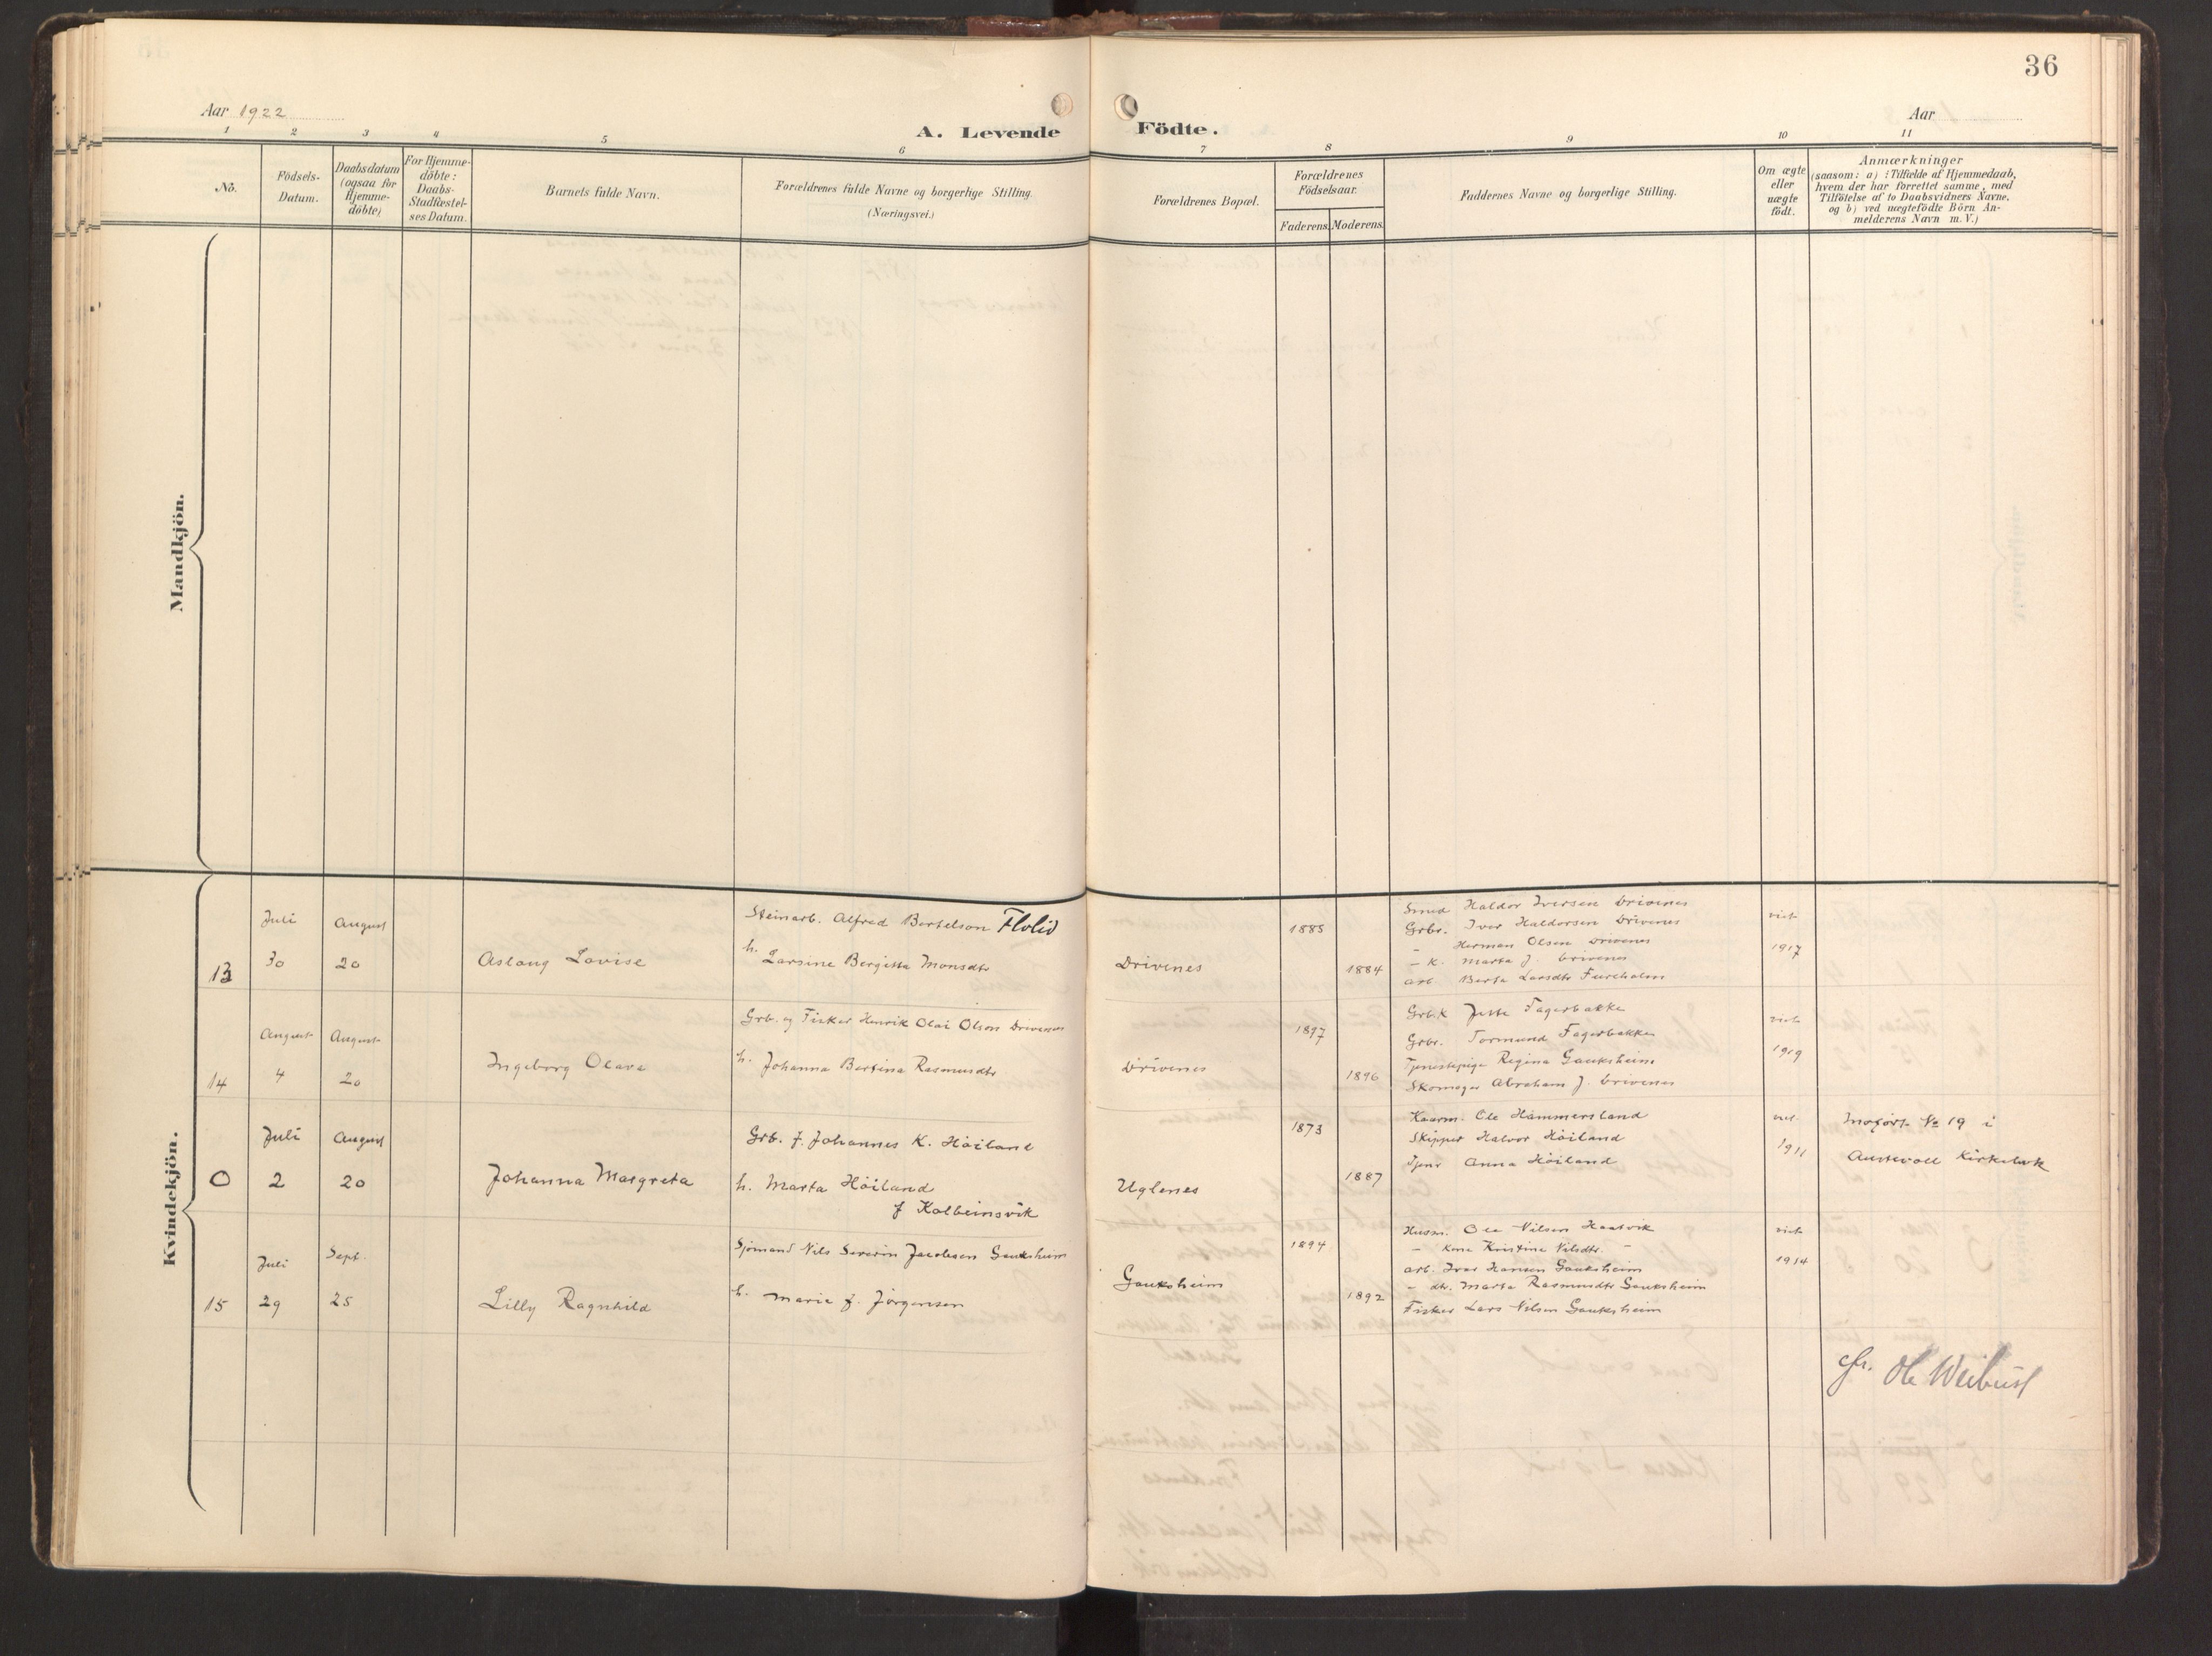 36
Aar 1922
Aar
1 2 3 4 5 6 7 8 9 10 11
A. Levende Födte.
No.
Födsels-
Datum.
Daabsdatum
(ogsaa for
Hjemme-
döbte)
For Hjemme-
döbte:
Daabs-
Stadfæstel-
ses Datum.
Barnets fulde Navn.
Forældrenes fulde Navne og borgerlige Stilling.
(Næringsvei.)
Forældrenes Bopæl.
Forældrenes
Födselsaar.
Faderens. Moderens.
Faddernes Navne og borgerlige Stilling.
Om ægte
eller
uægte
födt.
Anmærkninger
(saasom: a) i Tilfælde af Hjemmedaab,
hvem der har forrettet samme, med
Tilföielse af to Daabsvidners Navne,
og b) ved uægtefödte Börn An-
melderens Navn m. V.)
Mandkjön.
Kvindekjön.
13
Juli
30
August
20
Aslaug Lovise
Steinarb. Alfred Bertelson Flolid
h. Larsine Bergitta Monsdtr
Drivenes
1885
1884
Smed Haldor Iversen Drivenes
Grbr. Iver Haldorsen Drivenes
– Herman Olsen Drivenes
– k. Marta J. Drivenes
arb. Berta Larsdtr Fureholm
viet
1917
14
August
4
August
20
Ingeborg Olava
Grb. og Fisker Henrik Olai Olson Drivenes
h. Johanna Bertina Rasmusdtr
Drivenes
1897
1896
Grb.k Jette Fagerbakke
Grbr. Tormund Fagerbakke
Tjenestepige Regina Gauksheim
Skomager Abraham J. Drivenes
viet
1919
0
Juli
2
August
20
Johanna Margreta
Grb. J. Johannes K. Höiland
h. Marta Höiland
f Kolbeinsvik
Uglenes
1873
1887
Kaarm. Ole Hammersland
Skipper Halvor Höiland
Tjener Anna Höiland
viet
1911
Indfört No 19 i
Austevoll Kirkebok
15
Juli
29
Sept.
25
Lilly Ragnhild
Sjömand Nils Severin Jacobsen Gauksheim
h. Marie f. Jörgensen
Gauksheim
1894
1892
Husm. Ole Nilsen Haatvik
– kone Kristine Nilsdtr. –
arb. Ivar Hansen Gauksheim
– dtr. Marta Rasmusdtr Gauksheim
Fisker Lars Nilsen Gauksheim
viet
1914
cfr. Ole Weibust